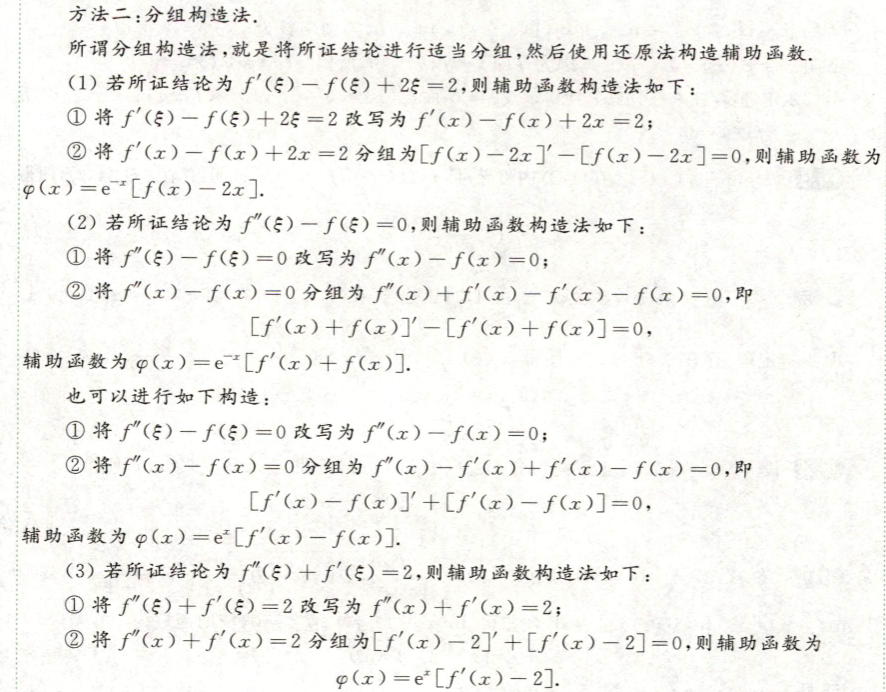 方法二:分组构造法.
所谓分组构造法,就是将所证结论进行适当分组,然后使用还原法构造辅助函数.
(1) 若所证结论为 f′(ξ)−f(ξ)+2ξ=2,则辅助函数构造法如下:
① 将 f′(ξ)−f(ξ)+2ξ=2 改写为 f′(x)−f(x)+2x=2;
② 将 f′(x)−f(x)+2x=2 分组为[f(x)−2x]′−[f(x)−2x]=0,则辅助函数为
φ(x)=e⁻ˣ[f(x)−2x].
(2) 若所证结论为 f″(ξ)−f(ξ)=0,则辅助函数构造法如下:
① 将 f″(ξ)−f(ξ)=0 改写为 f″(x)−f(x)=0;
② 将 f″(x)−f(x)=0 分组为 f″(x)+f′(x)−f′(x)−f(x)=0,即
[f′(x)+f(x)]′−[f′(x)+f(x)]=0,
辅助函数为 φ(x)=e⁻ˣ[f′(x)+f(x)].
也可以进行如下构造:
① 将 f″(ξ)−f(ξ)=0 改写为 f″(x)−f(x)=0;
② 将 f″(x)−f(x)=0 分组为 f″(x)−f′(x)+f′(x)−f(x)=0,即
[f′(x)−f(x)]′+[f′(x)−f(x)]=0,
辅助函数为 φ(x)=eˣ[f′(x)−f(x)].
(3) 若所证结论为 f″(ξ)+f′(ξ)=2,则辅助函数构造法如下:
① 将 f″(ξ)+f′(ξ)=2 改写为 f″(x)+f′(x)=2;
② 将 f″(x)+f′(x)=2 分组为[f′(x)−2]′+[f′(x)−2]=0,则辅助函数为
φ(x)=eˣ[f′(x)−2].